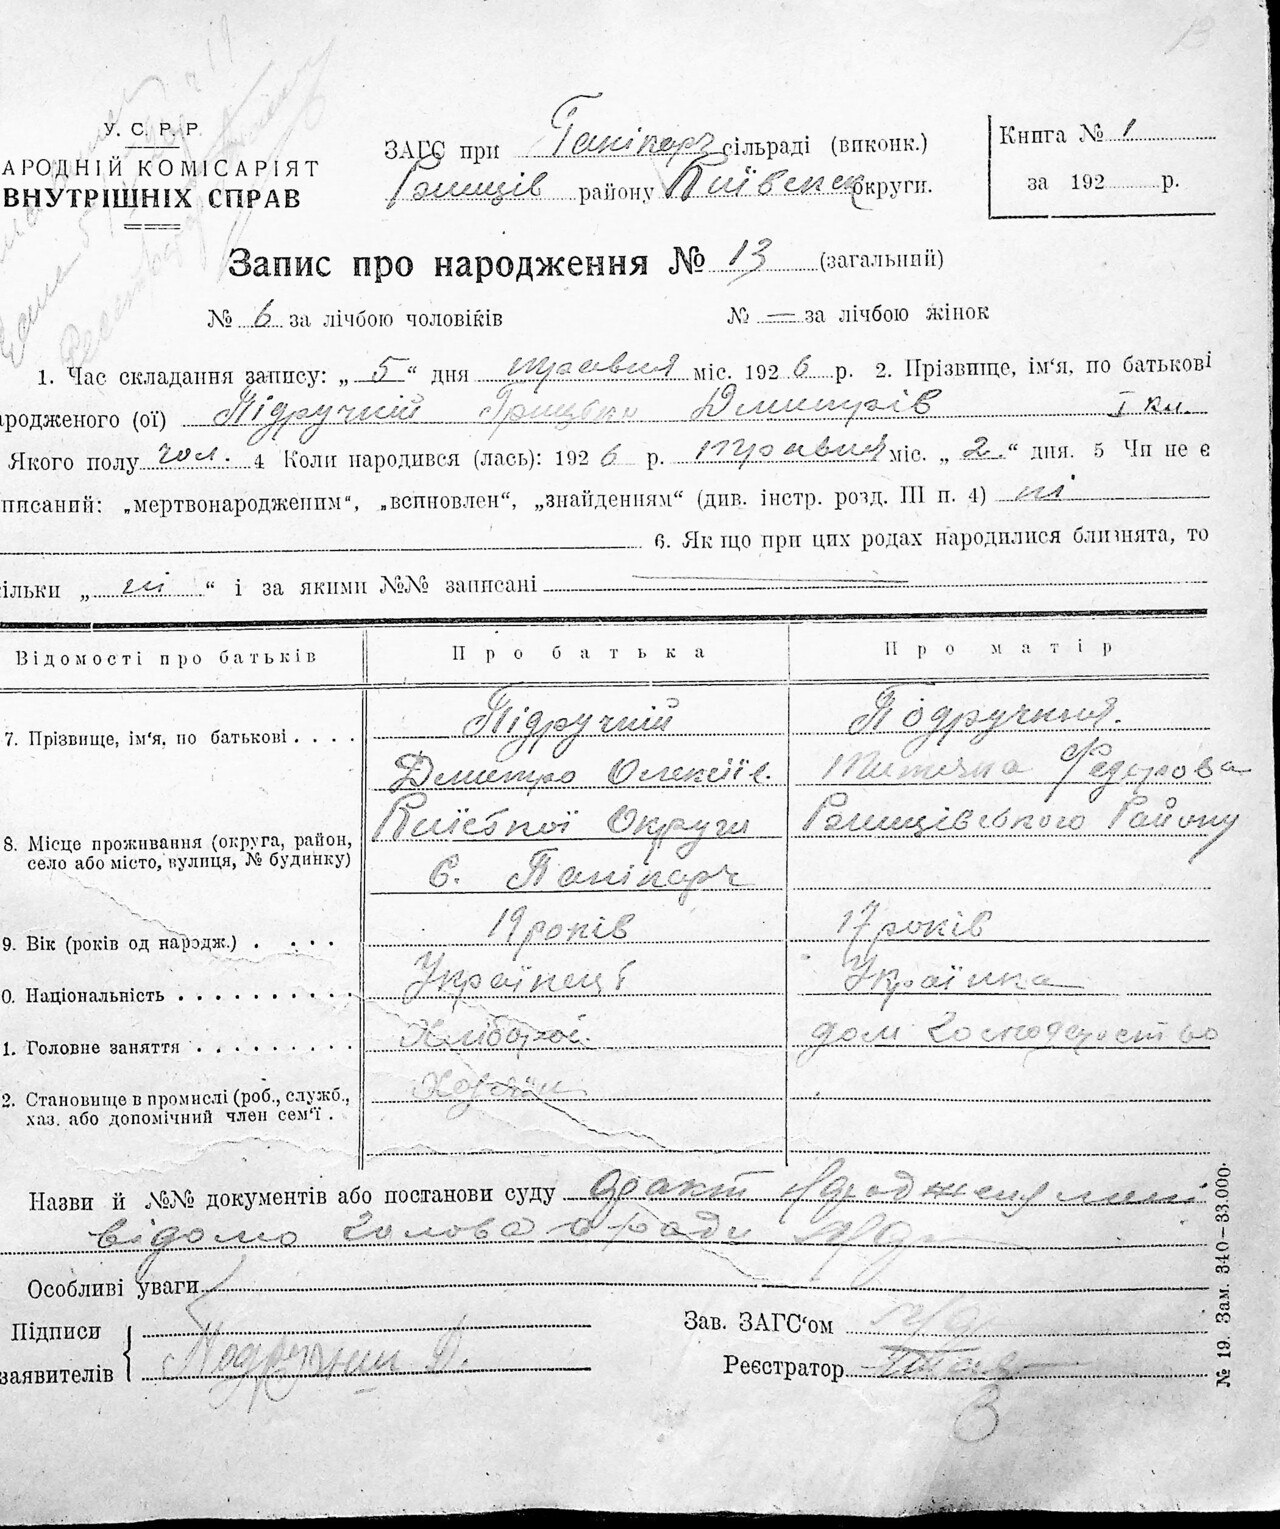 13
У. С. Р. Р.
АРОДНІЙ КОМІСАРІЯТ
ВНУТРІШНІХ СПРАВ
ЗАГС при Панікарч сільраді (виконк.)
Ржищів району Київськ округи.
Книга № 1
за 192 р.
Запис про народження № 13 (загальний)
№ 6 за лічбою чоловіків № — за лічбою жінок
1. Час складання запису: „ 5 “ дня травня міс. 192 6 р. 2. Прізвище, ім‘я, по батькові
ародженого (ої) Підручній Грицько Дмитрів І кн.
Якого полу чол. 4 Коли народився (лась): 192 6 р. травня міс. „ 2. “ дня. 5 Чи не є
писаний: „мертвонародженим“, „всиновлен“, „знайденням“ (див. інстр. розд. III п. 4) ні
6. Якщо при цих родах народилися близнята, то
ільки „ ні “ і за якими №№ записані
Відомості про батьків Про батька Про матір
7. Прізвище, ім‘я, по батькові . . . . Підручній Подручная.
Дмитро Олексіїв. Титяна Федорова
8. Місце проживання (округа, район, село або місто, вулиця, № будинку) Київської Округи Ржищівського Району
С. Панікарч
9. Вік (років од народж.) . . . . . 19 років 17 років
0. Національність . . . . . . . . . . Українець Українка
1. Головне заняття . . . . . . . . . Хлібороб. дом господарство
2. Становище в промислі (роб., служб., хаз. або допомічний член сем‘ї . Хозяїн
Назви й №№ документів або постанови суду факт народження мині
відомо голова с/ради
Особливі уваги
Підписи
заявителів Подручний Д.
Зав. ЗАГС‘ом
Реєстратор
3
№ 19. Зам. 340—33.000.